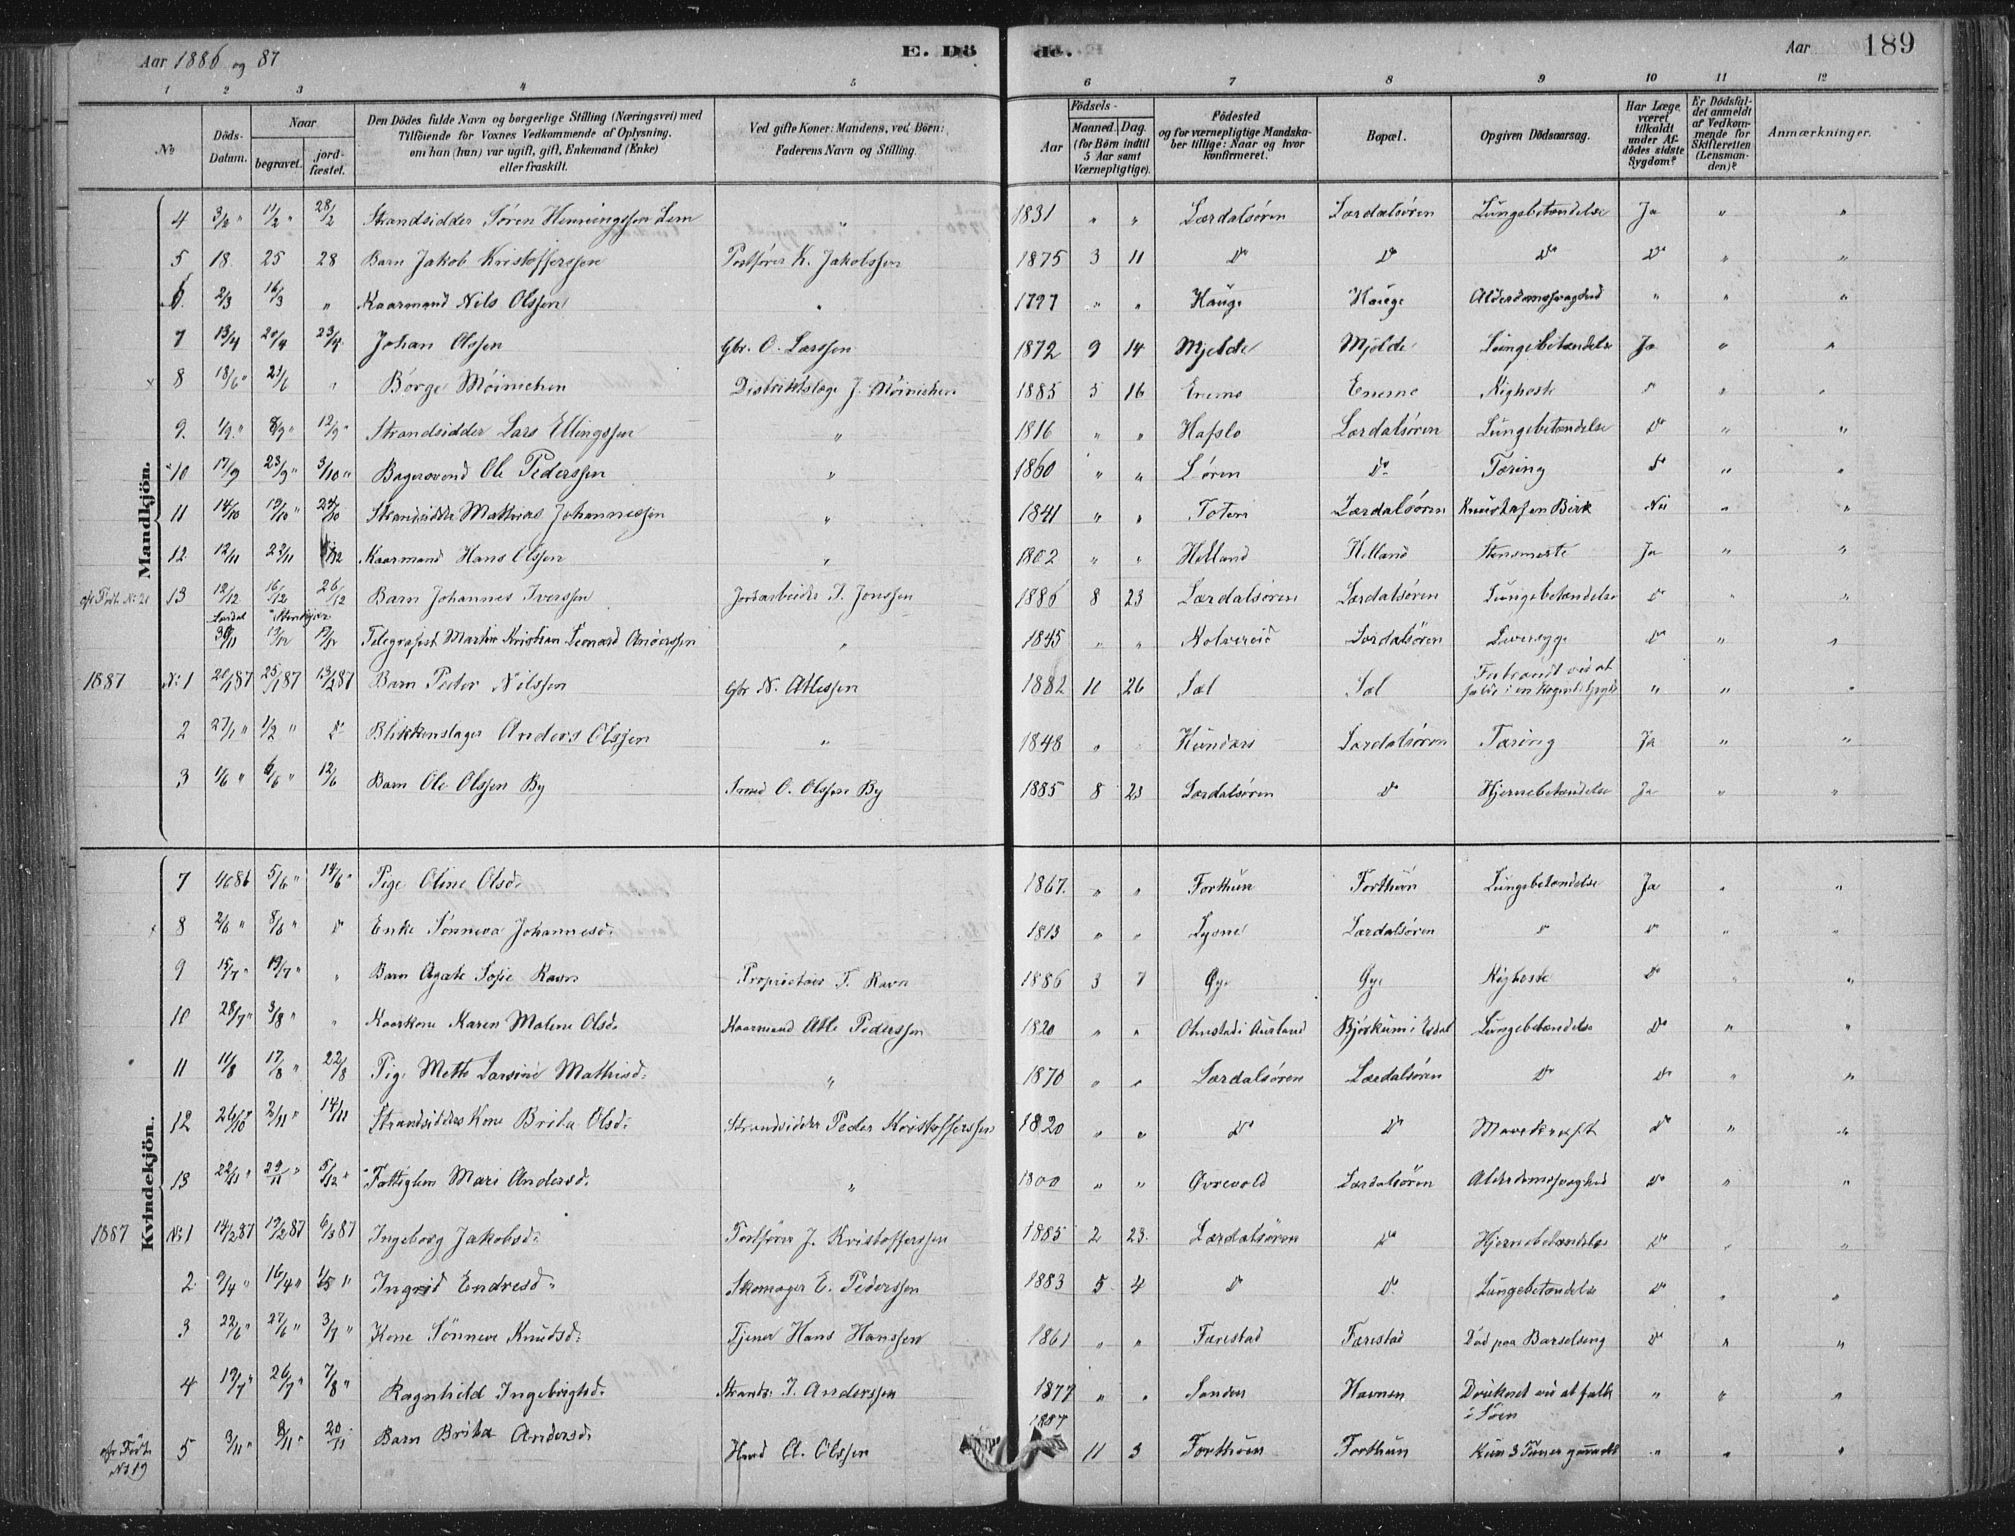 Aar 1886 og 87 E. Dö de. Aar 189
1 2 3 4 5 6 7 8 9 10 11 12
No Döds-Datum. Naar begravet. jordfæstet. Den Dödes fulde Navn og borgerlige Stilling (Næringsvei) med Tilföiende for Voxnes Vedkommende af Oplysning, om han (hun) var ugift, gift, Enkemand (Enke) eller fraskilt. Ved gifte Koner: Mandens, ved Börn: Faderens Navn og Stilling. Födsels- Aar Maaned. Dag. (for Börn indtil 5 Aar samt Værnepligtige). Födested og for værnepligtige Mandskaber tillige: Naar og hvor konfirmeret. Bopæl. Opgiven Dödsaarsag. Har Læge været tilkaldt under Afdödes sidste Sygdom? Er Dödsfaldet anmeldt af Vedkommende for Skifteretten (Lensmanden)? Anmærkninger.
Mandkjön.
4 3/2 " 11/2 " 28/2 Strandsidder Søren Henningssen Lem " 1831 " " Lærdalsøren Lærdalsøren Lungebetændelse Ja " "
5 18 25 28 Barn Jakob Kristofferssen Postfører K. Jakobssen 1875 3 11 do do do do " "
6. 2/3 16/3 " Kaarmand Nils Olssen " 1797 " " Hauge Hauge Alderdomssvaghed " " "
7 13/4 20/4 23/4 Johan Olssen Gbr. O. Larssen 1872 9 14 Mjelde Mjelde Lungebetændelse Ja " "
8 18/6 " 23/6 " Børge Møinichen Distriktslæge J. Møinichen 1885 5 16 Eremo Eremo Kighoste do " "
9. 1/9. " 8/9 " 12/9 " Strandsidder Lars Ellingssen " 1816 " " Hafslo Lærdalsøren Lungebetændelse do " "
10 17/9 23/9 " 3/10 " Bagersvend Ole Pederssen " 1860 " " Løren do Tæring do " "
11 14/10 19/10 " 24/10 Strandsidder Mathias Johannessen " 1841 " " Toten Lærdalsøren Knust af en Birk Nei " "
12 12/11 22/11 1/12 Kaarmand Hans Olssen " 1802 " " Hilland Hilland Stensmerte Ja " "
13 12/12 16/12 26/12 Barn Johannes Iverssen Jordarbeider I. Jonssen 1886 8 23 Lærdalsøren Lærdalsøren Lungebetændelse do " "
30/11 13/12 13/12 Telegrafist Martin Kristian Leonard Anderssen " 1845 " " Kolvereid Lærdalsören Leversyge do " "
1887 No 1 20/1 87 25/1 87 13/2 87 Barn Peder Nilssen Gbr N. Atlessen 1882 11 26 Sæl Sæl Forbrændt ved at falde i en kogende Gryde " " "
2 27/1 " 1/2 " do Blikkenslager Anders Olssen " 1848 " " Hundors Lærdalsøren Tæring Ja " "
3 1/6 " 6/6 " 12/6 Barn Ole Olssen By Smed O. Olssen By 1885 8 23 Lærdalsøren do Hjernebetændelse Ja " "
Kvindekjön.
7 1/6 86 5/6 " 14/6 " Pige Oline Olsd: 1867. " " Forthun Forthun Lungebetændelse Ja " "
8 2/6 " 8/6 " do Enke Sønneva Johannesd: 1813 " " Lysne Lærdalsøren do do " "
9 15/7 " 19/7 " " Barn Agate Sofie Ravn Proprietær T. Ravn 1886 3 7 Øye Øye Kighoste do " "
10 28/7 " 3/8 " " Kaarkone Karen Malene Olsd: Kaarmand Atle Pederssen 1820 " " Ohnstad i Aurland Bjørkum i Erdal Lungebetændelse do " "
11 11/8 17/8 " 22/8 Pige Mette Larsine Mathisd: " 1870 " " Lærdalsøren Lærdalsøren do do " "
12 26/10 2/11 " 14/11 Strandsidders Kone Brita Olsd: Strandsidder Peder Kristofferssen 1820 " " do do Mavekræft do " "
13 22/11 29/11 " 5/12 " Fattiglem Mari Andersd: " 1800 " " Øvrevold Lærdalsøren Alderdomssvaghed do " "
1887 No 1 14/2 87 19/2 87 6/3 87 Ingeborg Jakobsd: Postfører J. Kristofferssen 1885 2 23 Lærdalsøren do Hjernebetændelse do " "
2 9/4 " 16/4 " 1/5 " Ingrid Endresd: Skomager E. Pederssen 1883 5 4 do do Lungebetændelse do " "
3 22/6 " 27/6 " 3/7 " Kone Sønneve Knudsd: Tjener Hans Hanssen 1861 " " Færestad Færestad Død paa Barselseng do " "
4 19/7 " 26/7 " 7/8 " Ragnhild Ingebrigtsd: Strands: I. Anderssen 1877 " " Sanden Havnen Druknet ved at falde i Søen " " "
5 3/11 " 8/11 " 20/11 Barn Brita Andersd: Husmd A. Olssen 1887 11 3 Forthun Forthun Kun 3 Timer gammelt " " "